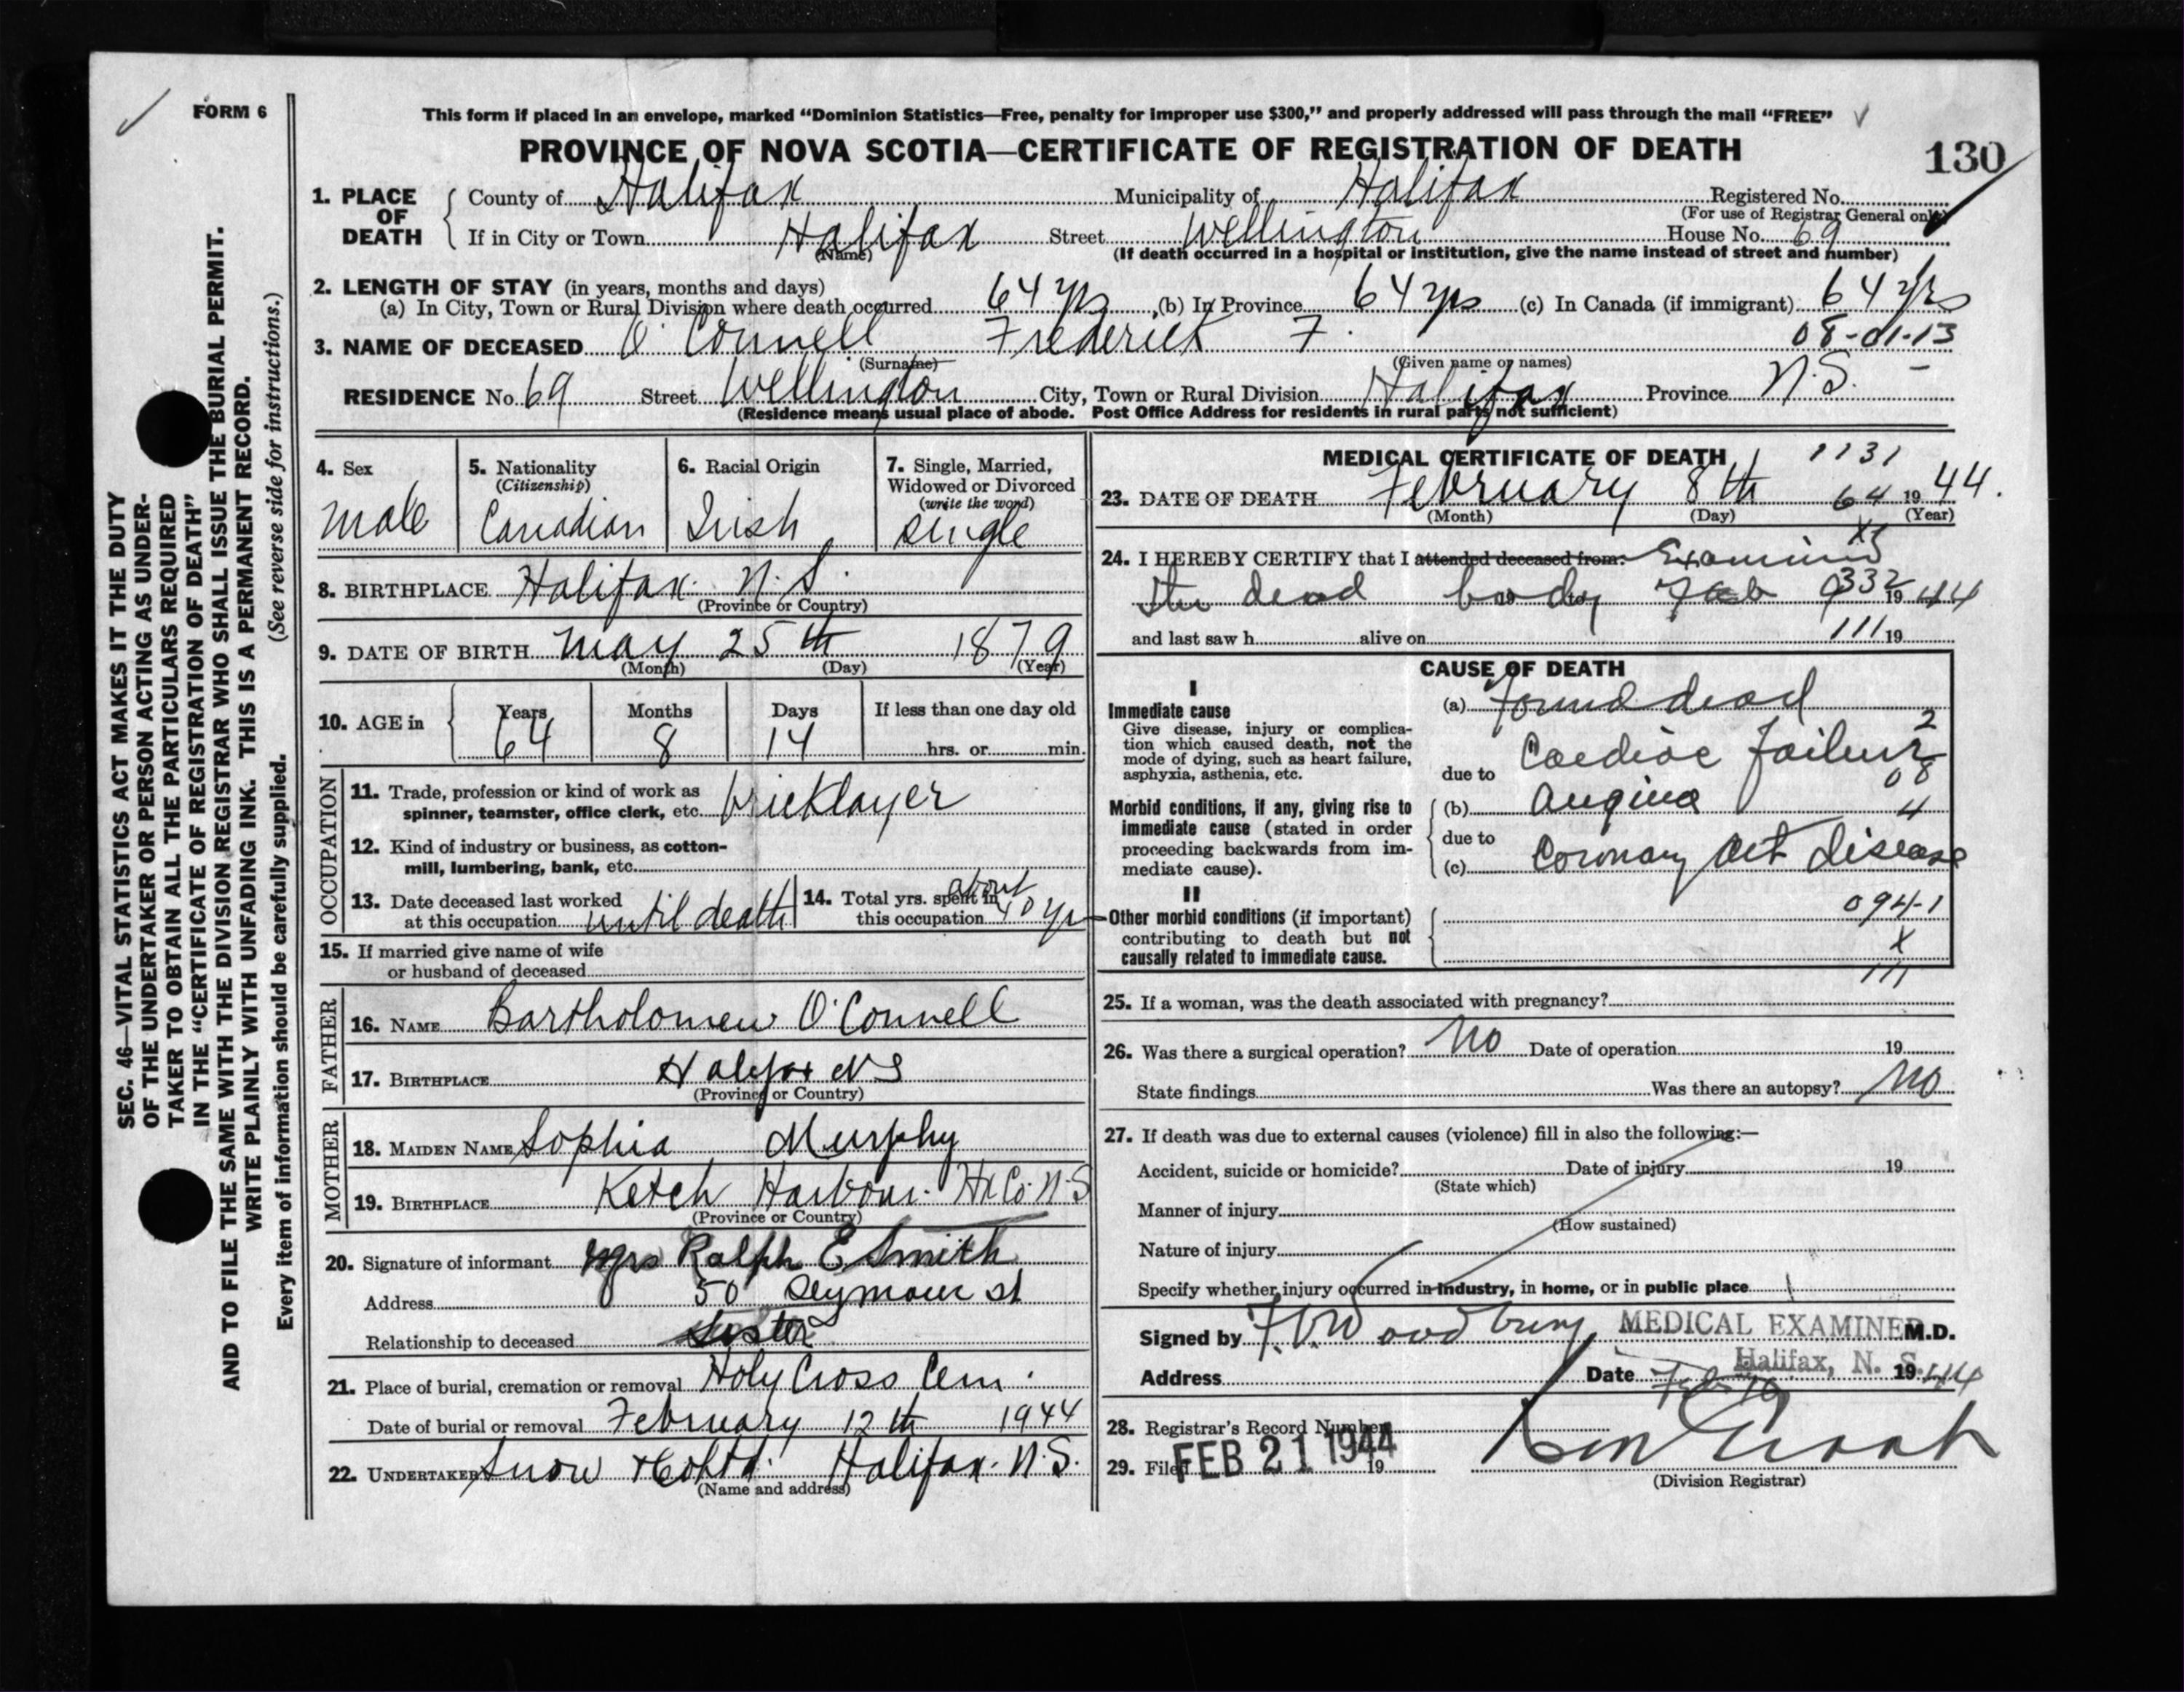 FORM 6
This form if placed in an envelope, marked “Dominion Statistics—Free, penalty for improper use $300,” and properly addressed will pass through the mail “FREE”
PROVINCE OF NOVA SCOTIA—CERTIFICATE OF REGISTRATION OF DEATH
130
1. PLACE OF DEATH County of Halifax Municipality of Halifax Registered No.
(For use of Registrar General only)
If in City or Town Halifax Street Wellington House No. 69
(Name) (If death occurred in a hospital or institution, give the name instead of street and number)
2. LENGTH OF STAY (in years, months and days)
(a) In City, Town or Rural Division where death occurred 64 yrs (b) In Province 64 yrs (c) In Canada (if immigrant) 64 yrs
08-01-13
3. NAME OF DECEASED O'Connell Frederick F.
(Surname) (Given name or names)
RESIDENCE No. 69 Street Wellington City, Town or Rural Division Halifax Province N.S.
(Residence means usual place of abode. Post Office Address for residents in rural parts not sufficient)
4. Sex male
5. Nationality (Citizenship) Canadian
6. Racial Origin Irish
7. Single, Married, Widowed or Divorced (write the word) single
8. BIRTHPLACE Halifax. N.S.
(Province or Country)
9. DATE OF BIRTH May 25th 1879
(Month) (Day) (Year)
10. AGE in Years 64 Months 8 Days 14 If less than one day old
hrs. or min.
OCCUPATION
11. Trade, profession or kind of work as
spinner, teamster, office clerk, etc. bricklayer
12. Kind of industry or business, as cotton-
mill, lumbering, bank, etc.
13. Date deceased last worked
at this occupation until death
14. Total yrs. spent in
this occupation about 40 yr
15. If married give name of wife
or husband of deceased
FATHER
16. NAME Bartholomew O'Connell
17. BIRTHPLACE Halifax NS
(Province or Country)
MOTHER
18. MAIDEN NAME Sophia Murphy
19. BIRTHPLACE Ketch Harbour. Hx Co. N.S
(Province or Country)
20. Signature of informant Mrs Ralph E Smith
Address 50 Seymour st
Relationship to deceased Sister
21. Place of burial, cremation or removal Holy Cross Cem.
Date of burial or removal February 12th 1944
22. UNDERTAKER Snow & Co Ltd. Halifax. N.S.
(Name and address)
MEDICAL CERTIFICATE OF DEATH 1131
23. DATE OF DEATH February 8th 64 1944.
(Month) (Day) (Year)
24. I HEREBY CERTIFY that I attended deceased from: Examined
the dead body Feb 9 332 1944
and last saw h alive on 111 19
CAUSE OF DEATH
I
Immediate cause
Give disease, injury or complica-
tion which caused death, not the
mode of dying, such as heart failure,
asphyxia, asthenia, etc.
(a) Found dead
2
due to Cardiac Failure
08
Morbid conditions, if any, giving rise to
immediate cause (stated in order
proceeding backwards from im-
mediate cause).
(b) Angina
4
due to
(c) Coronary Art Disease
II
Other morbid conditions (if important)
contributing to death but not
causally related to immediate cause.
094-1
X
111
25. If a woman, was the death associated with pregnancy?
26. Was there a surgical operation? No Date of operation 19
State findings Was there an autopsy? No
27. If death was due to external causes (violence) fill in also the following:—
Accident, suicide or homicide? Date of injury 19
(State which)
Manner of injury
(How sustained)
Nature of injury
Specify whether injury occurred in industry, in home, or in public place
Signed by Woodbury MEDICAL EXAMINER M.D.
Halifax, N. S.
Address Date Feb 1944
28. Registrar's Record Number
29. Filed FEB 21 1944 19
(Division Registrar)
SEC. 46—VITAL STATISTICS ACT MAKES IT THE DUTY
OF THE UNDERTAKER OR PERSON ACTING AS UNDER-
TAKER TO OBTAIN ALL THE PARTICULARS REQUIRED
IN THE “CERTIFICATE OF REGISTRATION OF DEATH”
AND TO FILE THE SAME WITH THE DIVISION REGISTRAR WHO SHALL ISSUE THE BURIAL PERMIT.
WRITE PLAINLY WITH UNFADING INK. THIS IS A PERMANENT RECORD.
Every item of information should be carefully supplied. (See reverse side for instructions.)